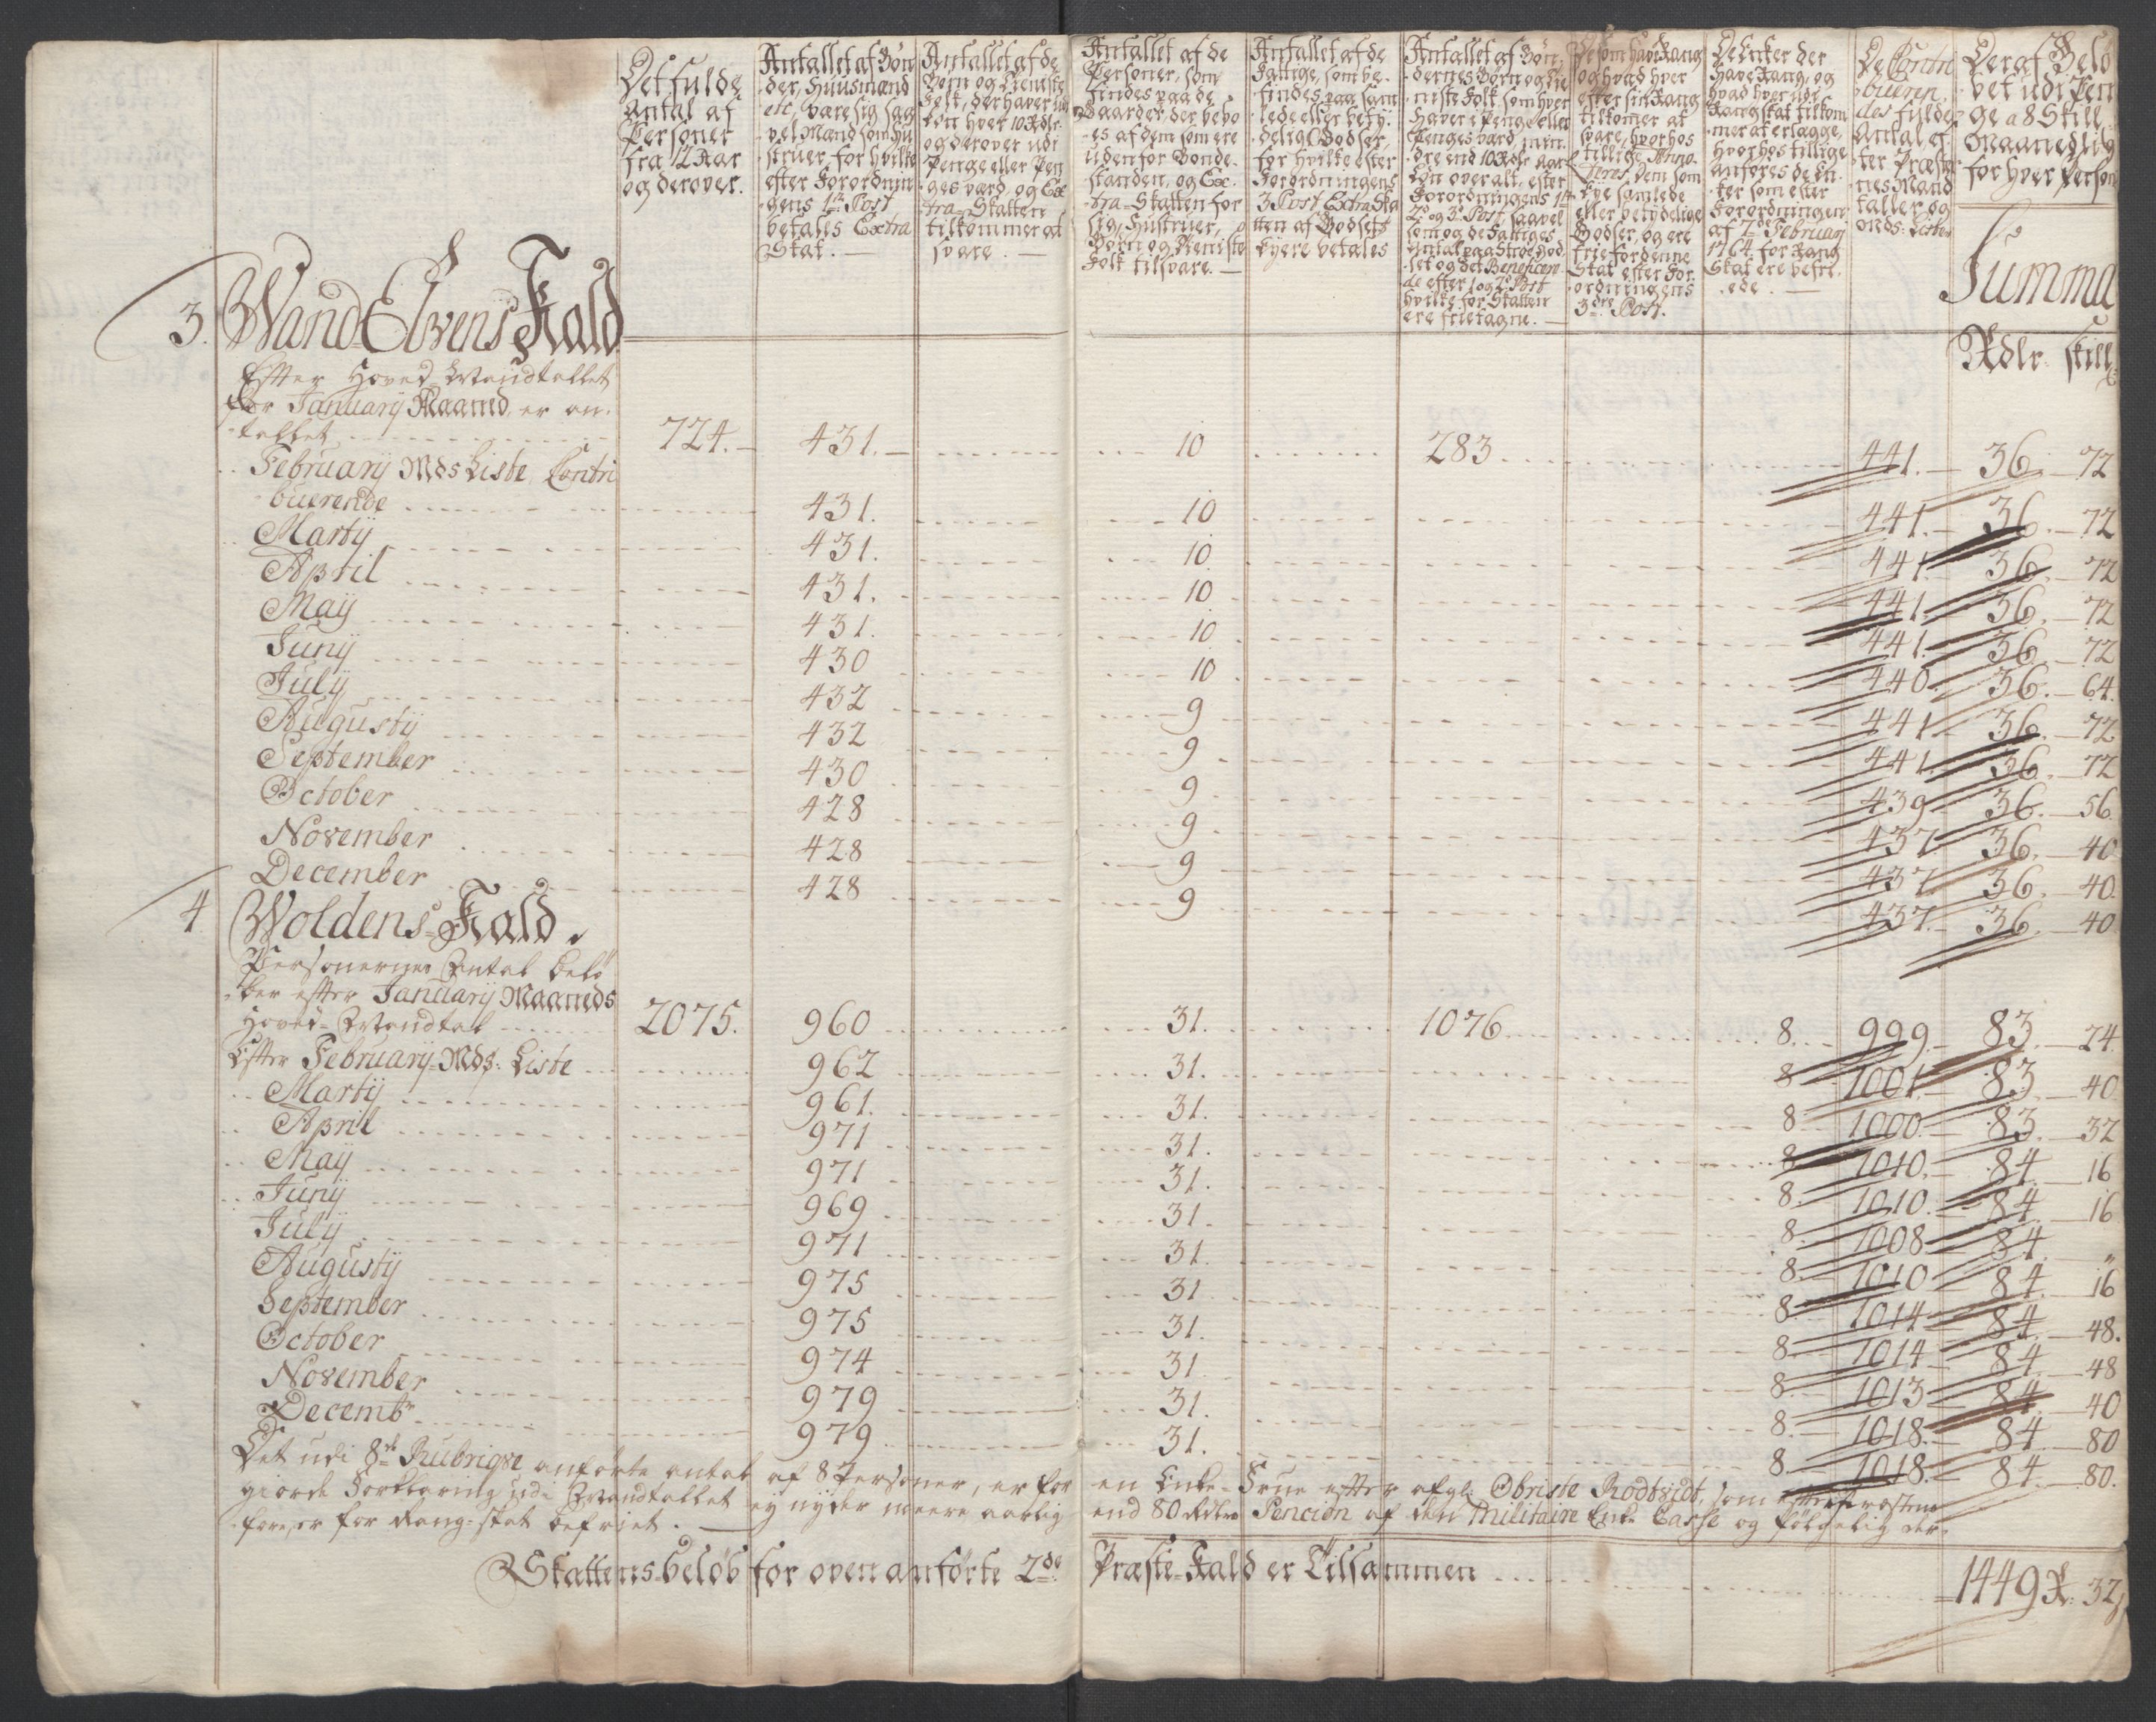 Det fulde
Antal af
Personer
fra 12 Aar
og derover.
Antallet af Bøn
der, Huusmænd
etc, være sig saa
vel Mænd som Hu
struer, for hvilke
efter Forordnin
gens 1te Post
betales Extra
Skat. —
Antallet af de
Børn og Tieniste
Folk, der haver
Løn hver 10 Rdlr
og derover udi
Penge eller Pen
ges værd, og Ex
tra-Skatten
tilkommer at
svare. —
Antallet af de
Personer, som
findes paa de
Gaarder, der bebo
es af dem som ere
uden for Bonde-
standen, og Ex-
tra-Skatten for
sig, Hustruer,
Børn og Tieniste
Folk tilsvare. —
Antallet af de
Fattige, som be-
findes paa sam
lede eller bety-
delig Godser,
for hvilke efter
Forordningens
3 Post Extra Ska
tten af Godsets
Eyere betales
Antallet af Bøn-
dernes Børn og Tie
niste Folk som hver
haver i Penge eller
Penges værd, min-
dre end 10 Rdlr aarl
Løn over alt, efter
Forordningens 1te
2de og 3de Post saavel
som og de Fattiges
Antal paa Strøe God
set og det Beneficeri
de efter 1 og 2de Post
hvilke for Skatten
ere frietagne. —
De som have Rang
og hvad hver
efter sin Rang
tilkomer at
svare, hvorhos
tillige Anno-
teres dem som
eye samlede
eller betydelige
Godser, og ere
frie for denne
Skat efter For-
ordningens
3die Post.
De Enker der
have Rang, og
hvad hver udi
Rangskat tilkom
mer at erlægge,
hvorhos tillige
anføres de En-
ker som efter
Forordningen
af 7de February
1764 for Rang
Skat ere befri-
ede. —
De Contri
bueren
des fulde
Antal ef
ter Præste
nes Mand
taller og
Mds: Lister
Deraf Belø
bet udi Pen
ge a 8 Skill
Maanedlig
for hver Person
Summa
Rdlr skill
3. Wand Elvens Kald
Efter Hoved-Mandtallet
for January Maaned er an-
tallet 724. 431. 10 283 441. 36. 72
February Mds Liste, Contri
buerende 431. 10 441. 36. 72
Martij 431. 10. 441. 36. 72
April 431. 10 441. 36. 72
Maij 431. 10 441. 36. 72
Junij 430 10 440. 36. 64.
Julij 432 9 441 36. 72
Augustij 432 9 441. 36. 72
September 430 9 439 36. 56.
October 428 9 437 36. 40
November 428 9 437 36. 40.
December 428 9 437. 36. 40
4 Woldens Kald.
Personernes Antal belø
ber efter January Maaneds
Hoved-Mandtal 2075. 960 31. 1076 8. 999. 83. 24.
Efter February Mds: Liste 962 31. 8 1001. 83. 40.
Martij 961. 31. 8 1000. 83. 32
April 971 31. 8 1010. 84. 16
Maij 971 31. 8. 1010. 84. 16
Junij 969 31. 8. 1008 84. „
Julij 971 31. 8. 1010 84. 16
Augustij 975 31 8. 1014 84. 48.
September 975 31. 8. 1014 84. 48
October 974 31 8. 1013 84. 40
November 979 31. 8. 1018. 84. 80
Decembr 979 31. 8. 1018. 84. 80.
Det udi 8de Rubriqve anførte antal af 8 Personer, er for en Enke-Frue efter afgl: Obriste Rodtvidt, som efter Præstens
giorde Forklaring udi Mandtallet ey nyder meere aarlig end 80 Rdlr Pencion af den Militaire Enke Casse og følgelig der-
fore, er for Rang-skat befriet. —
Skattens beløb for ovenanførte 2de Præste-Kald er Tilsammen 1449 R: 32